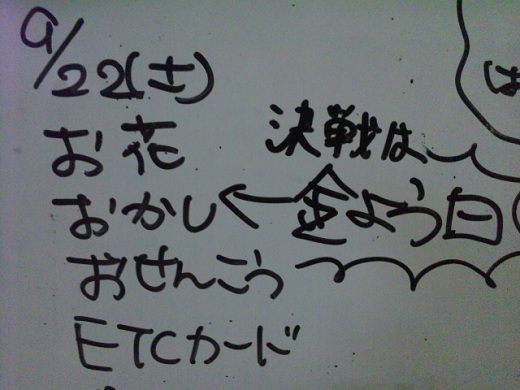 9/22(土)
お花
おかし
おせんこう
ETCカード
決戦は
金よう日
は